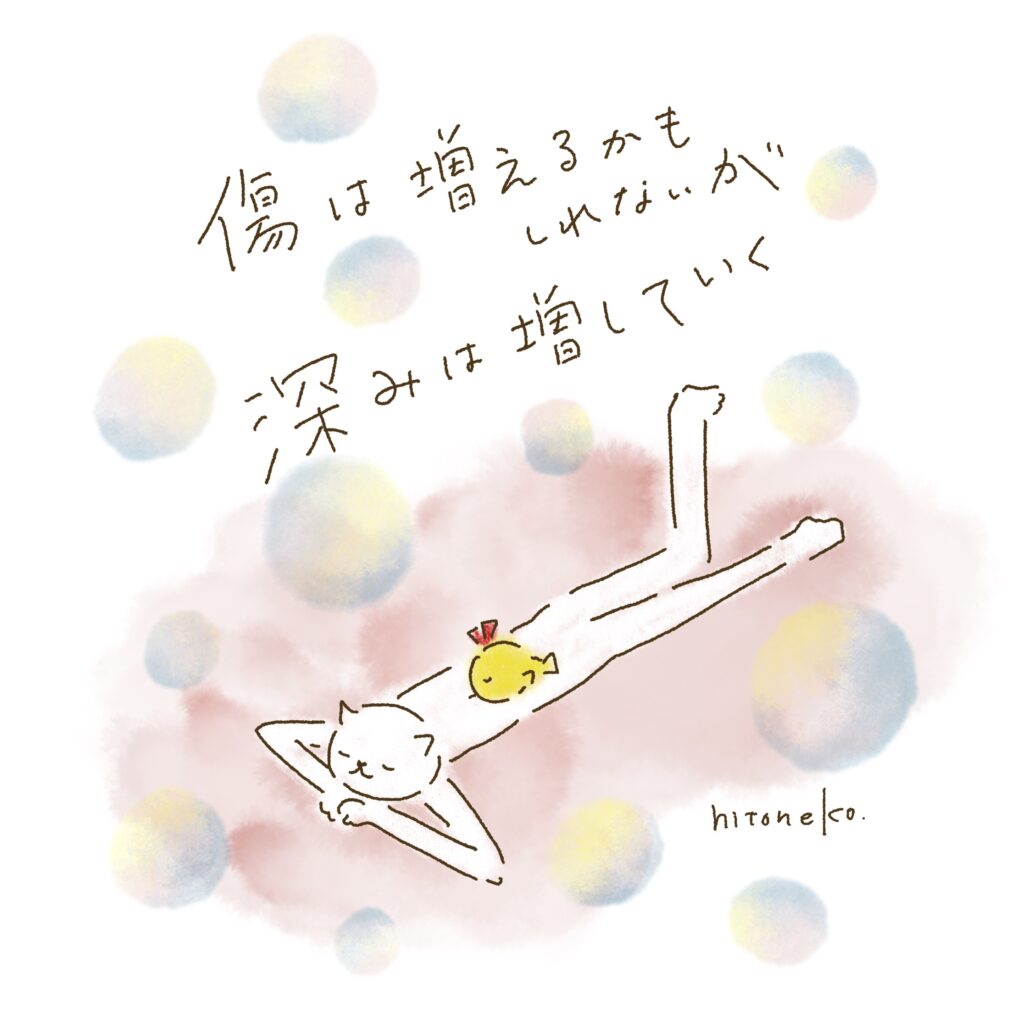 傷は増えるかも
しれないが
深みは増していく
hitoneko.